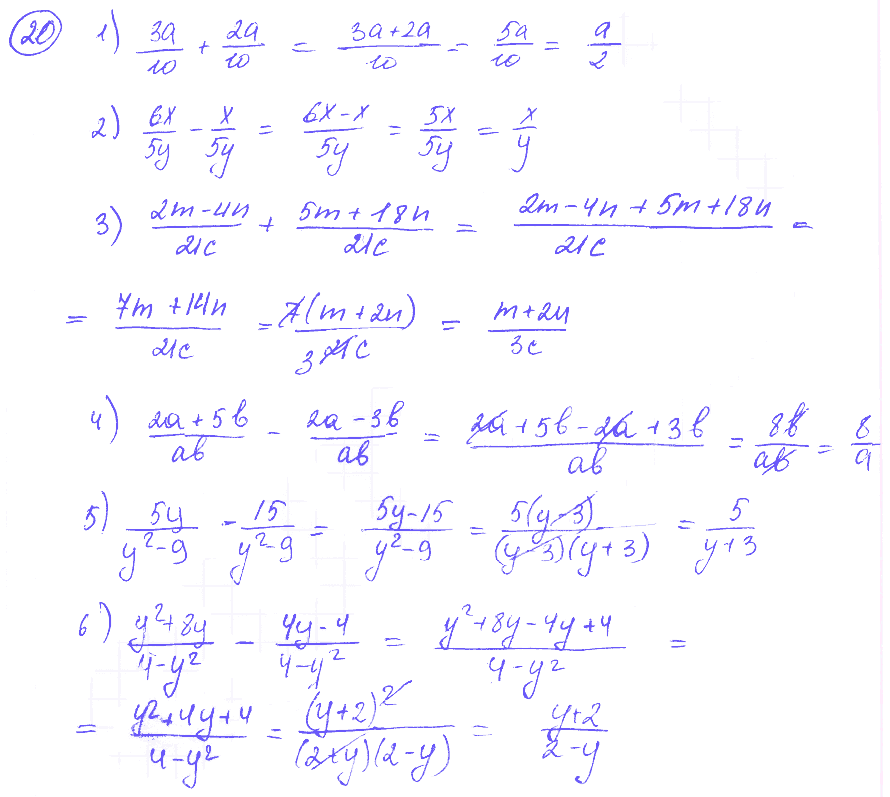 20 1) 3a/10 + 2a/10 = (3a+2a)/10 = 5a/10 = a/2
2) 6x/5y - x/5y = (6x-x)/5y = 5x/5y = x/y
3) (2m-4n)/21c + (5m+18n)/21c = (2m-4n+5m+18n)/21c =
= (7m+14n)/21c = 7(m+2n)/3 21c = (m+2n)/3c
4) (2a+5b)/ab - (2a-3b)/ab = (2a+5b-2a+3b)/ab = 8b/ab = 8/a
5) 5y/(y²-9) - 15/(y²-9) = (5y-15)/(y²-9) = 5(y-3)/(y-3)(y+3) = 5/(y+3)
6) (y²+8y)/(4-y²) - (4y-4)/(4-y²) = (y²+8y-4y+4)/(4-y²) =
= (y²+4y+4)/(4-y²) = (y+2)²/(2+y)(2-y) = (y+2)/(2-y)